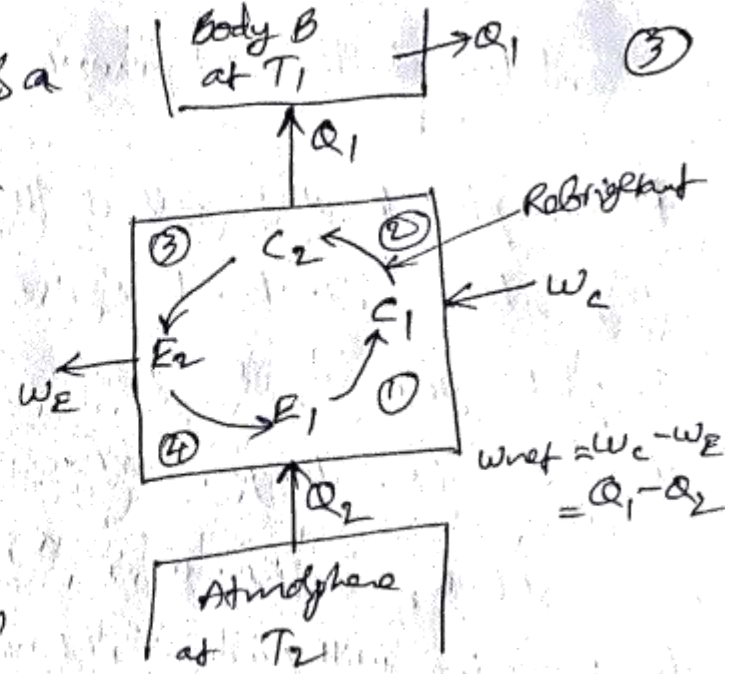 Body B
at T1
→ Q1
③
& a
Q1
Refrigerant
③
C2
②
Wc
C1
E2
WE
E1
①
④
Wnet = Wc - WE
= Q1 - Q2
Q2
Atmosphere
at T2